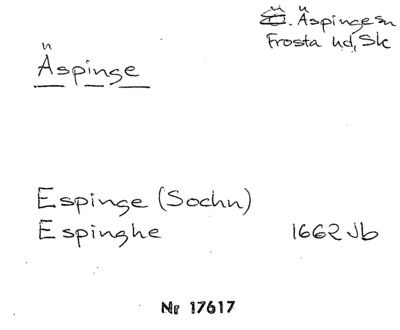 Ö. Äspinge sn
Frosta hd, Sk
Äspinge
Espinge (Sochn)
Espinghe 1662 Jb
Nr 17617